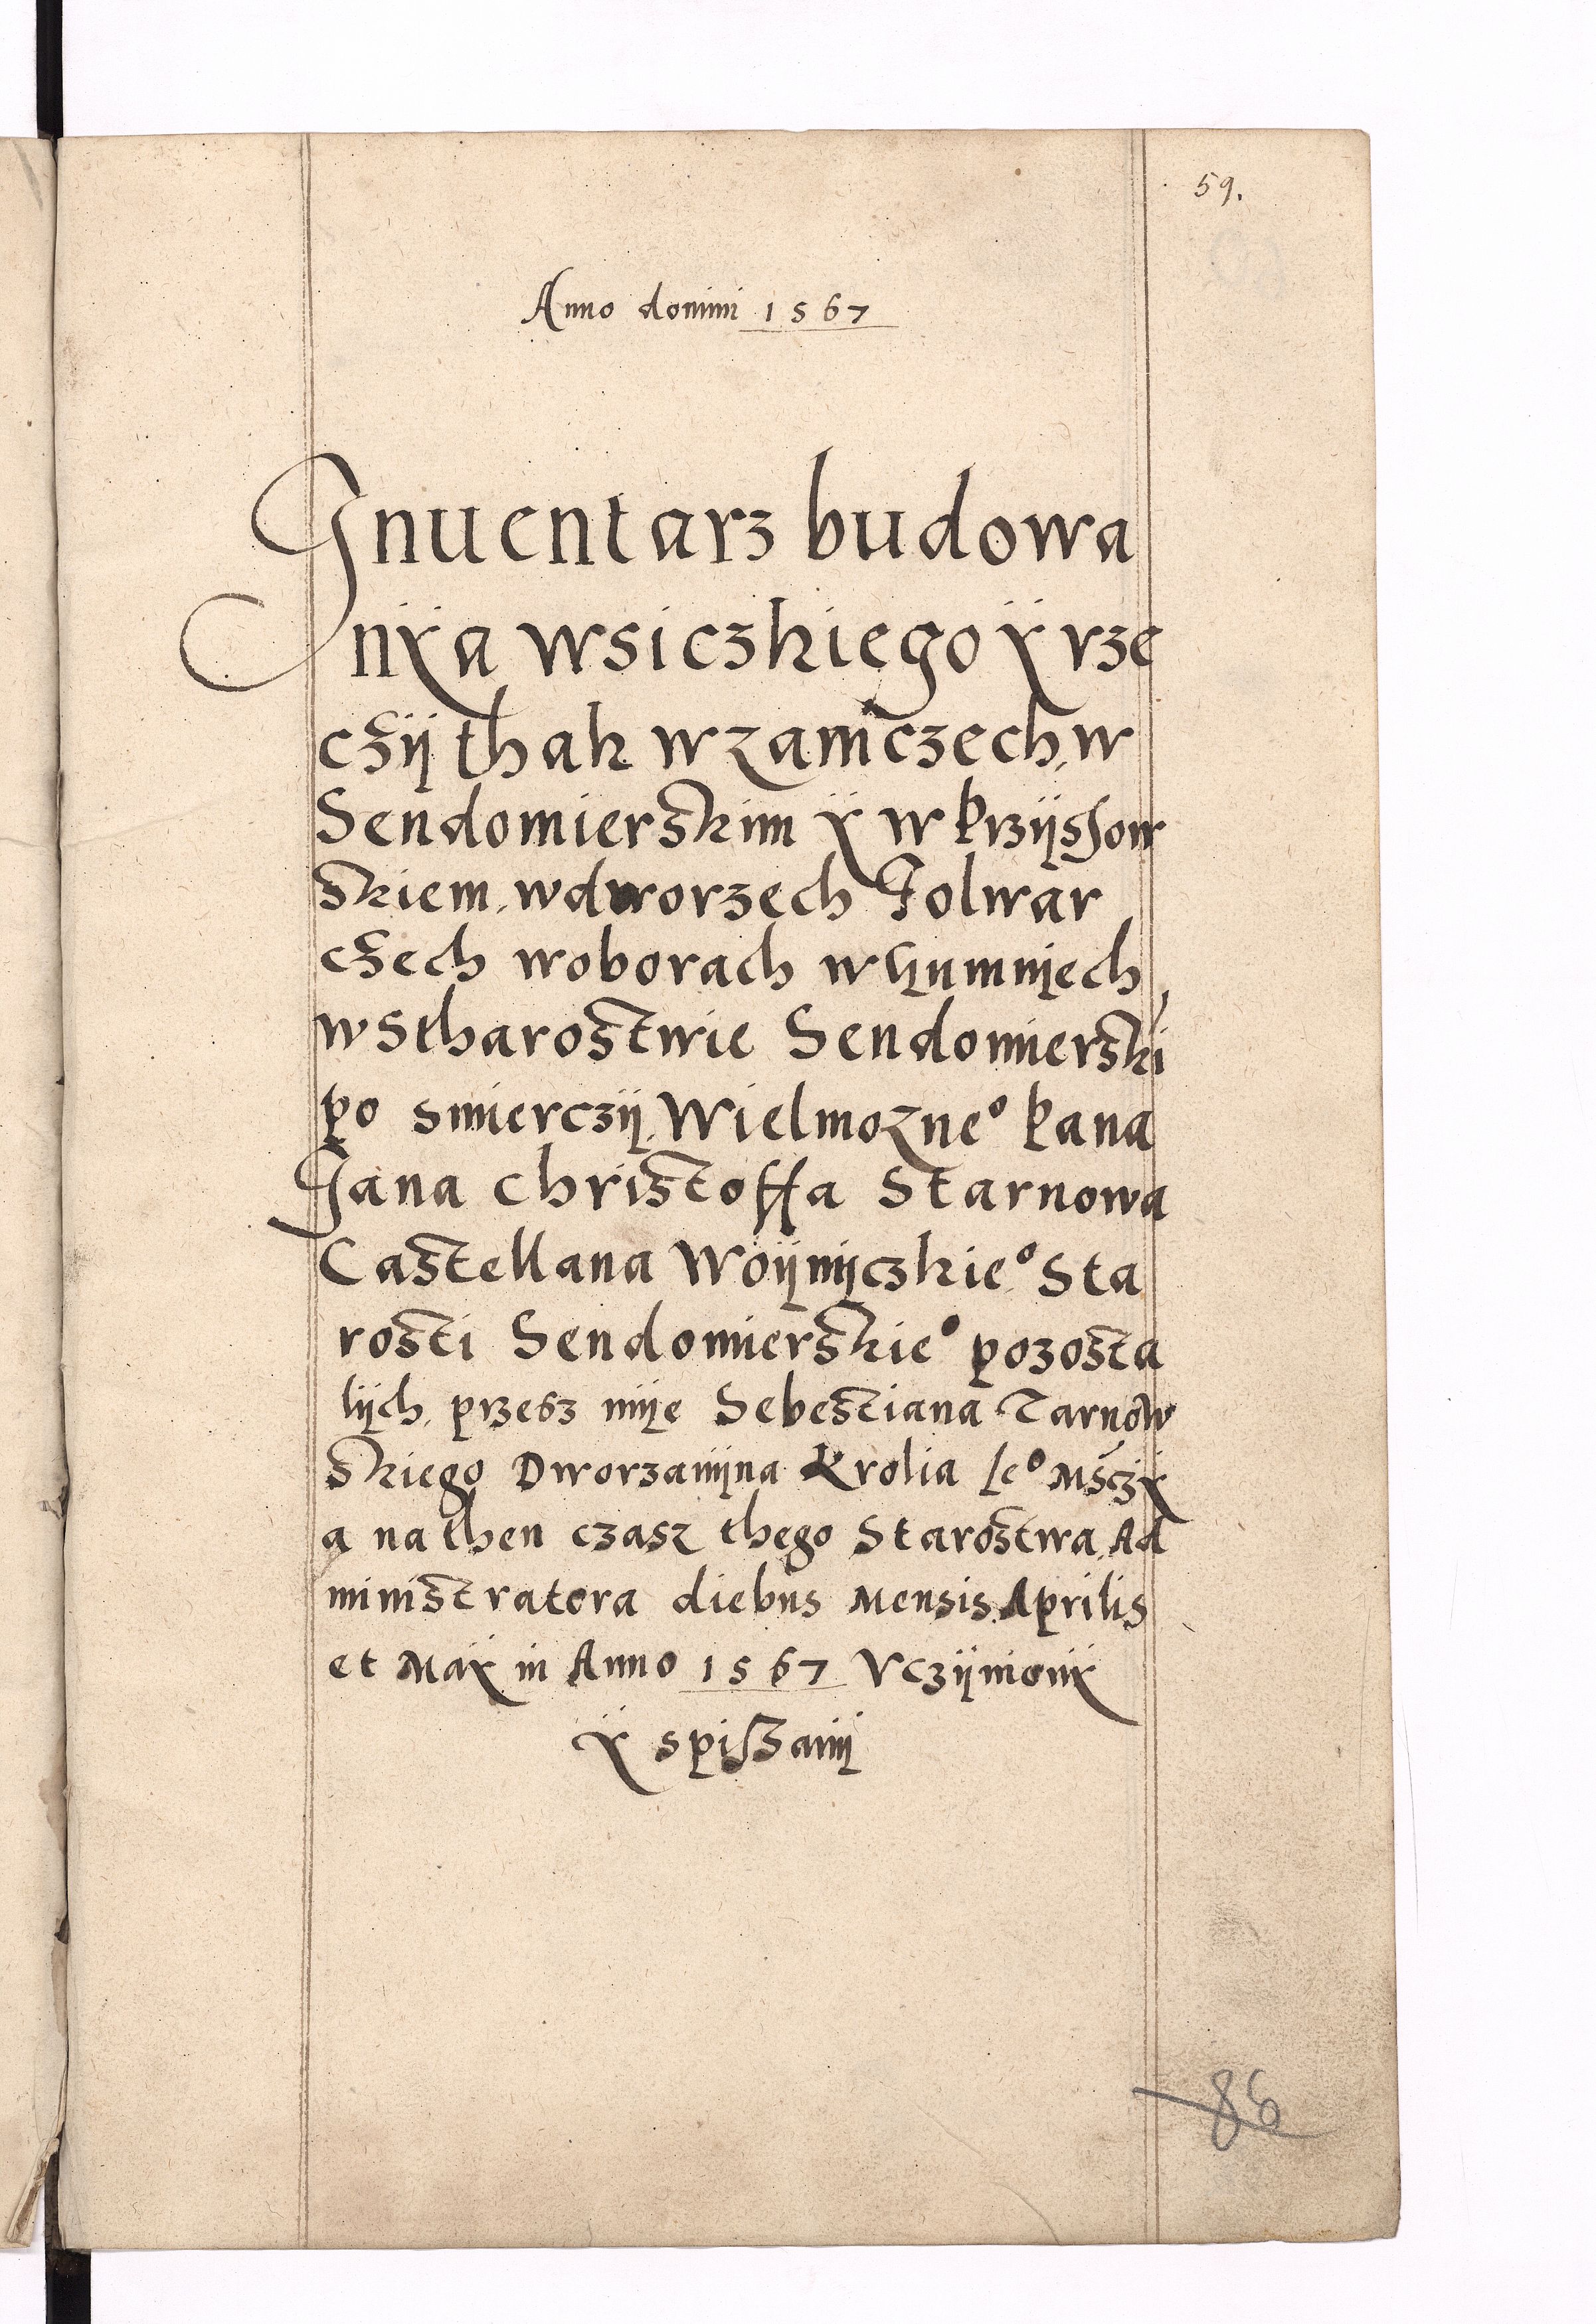 59.
Anno domini 1567
Inuentarz budowa
nÿa wsiczkiego ÿ rze
czÿ thak w zamczech, w
Sendomierskim ÿ w krzÿssow
skiem, w dworzech Folwar
czech w oborach w humniech
w Stharostwie Sendomierski
po smierczÿ Wielmozne° Pana
Jana Christoffa Starnowa
Castellana Woÿniczkie° Sta
rosti Sendomierskie° pozosta
lÿch, przesz mÿe Sebestiana Tarnow
skiego Dworzanÿna Krolia Je° Msczÿ
a na then czasz thego Starostwa Ad
ministratora diebus Mensis Aprilis
et Maÿ in Anno 1567 Vczÿnionÿ
ÿ spiszanÿ
86